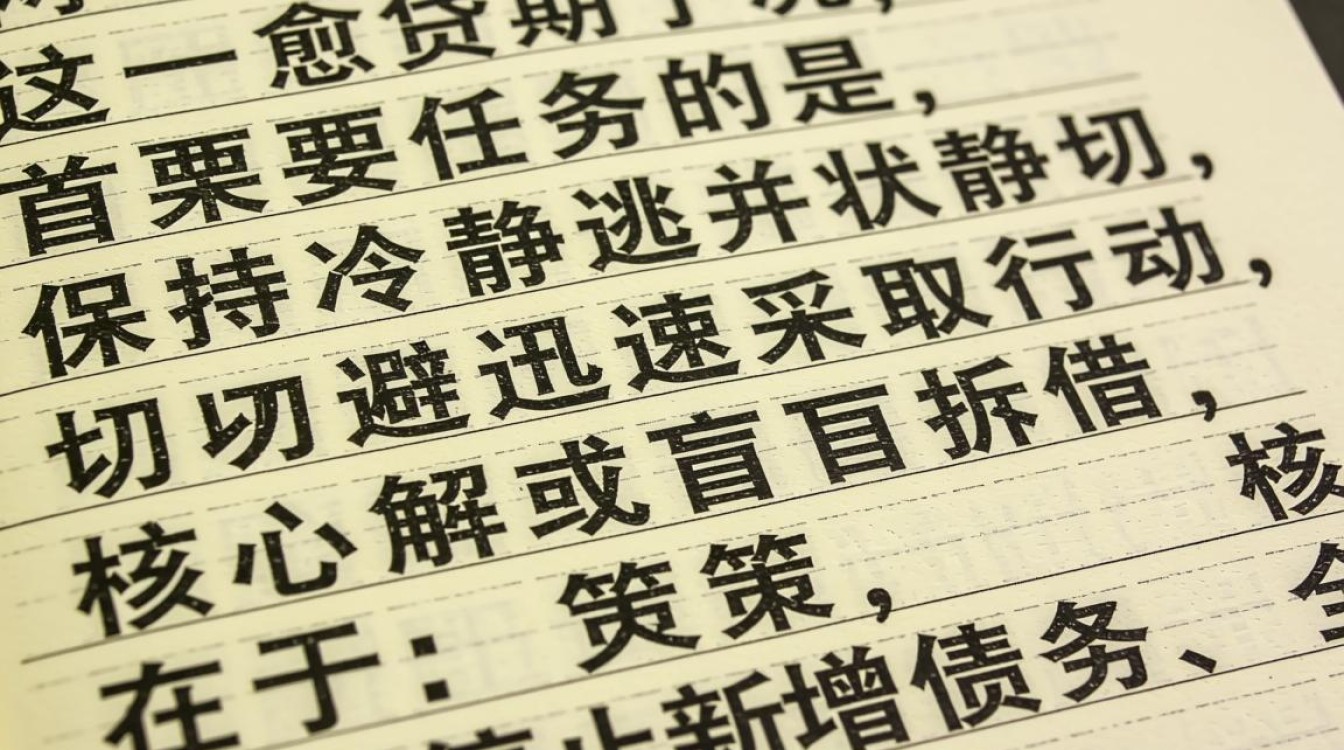 这一愈贷期
首栗要任务的是，
保持冷静逃并状静切，
切切避迅速采取行动，
核心解或盲盲拆借，
在于： 策策， 核
新增债务、全